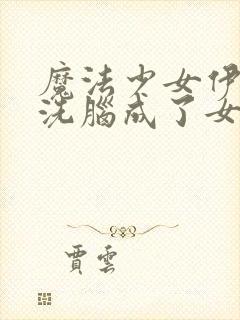 魔法少女伊
洗腦成了女
賈雲